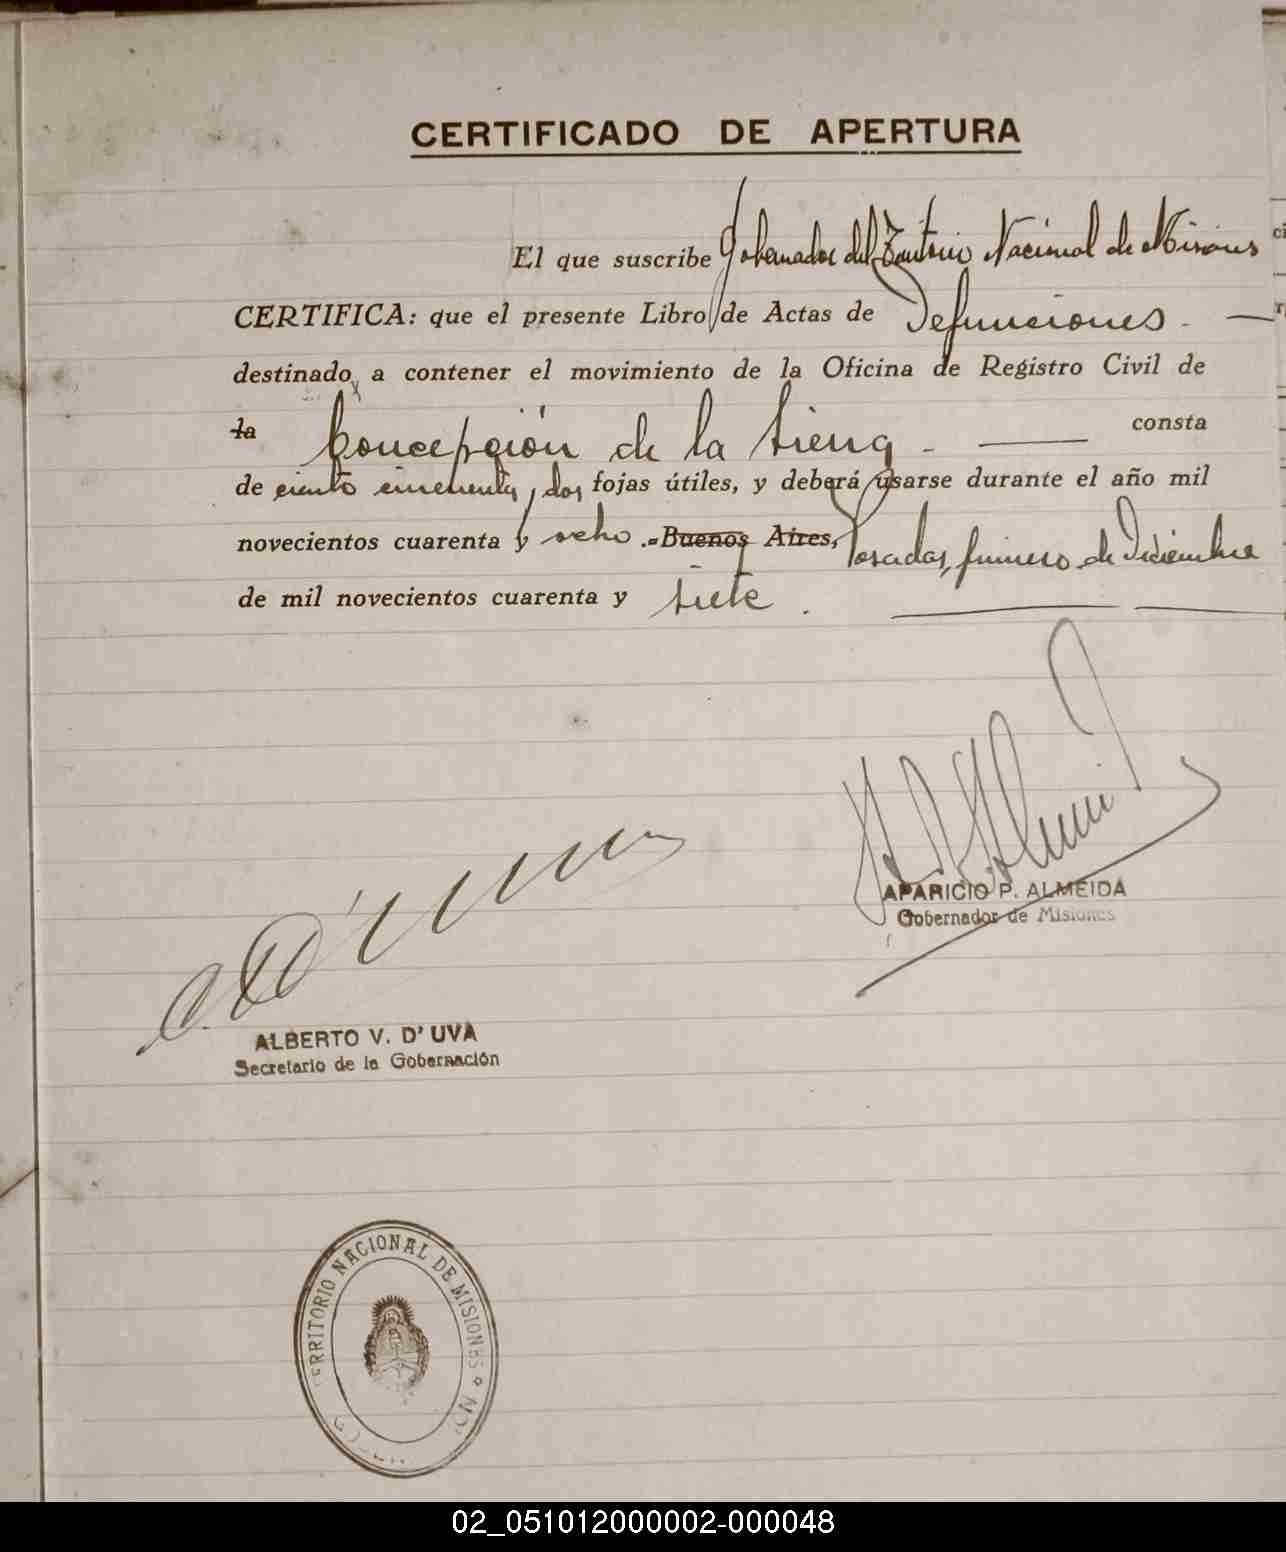 CERTIFICADO DE APERTURA
El que suscribe Gobernador del Territorio Nacional de Misiones
CERTIFICA: que el presente Libro de Actas de Defunciones. —
destinado a contener el movimiento de la Oficina de Registro Civil de
la Concepción de la Sierra. — consta
de ciento cincuenta y dos fojas útiles, y deberá usarse durante el año mil
novecientos cuarenta y ocho .- Buenos Aires, Posadas, primero de Diciembre
de mil novecientos cuarenta y siete .
APARICIO P. ALMEIDA
Gobernador de Misiones
ALBERTO V. D' UVA
Secretario de la Gobernación
ERRITORIO NACIONAL DE MISIONES
02_051012000002-000048